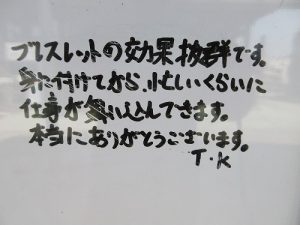 ブレスレットの効果抜群です。
身に付けてから、忙しいくらいに
仕事が舞い込んできます。
本当にありがとうございます。
T・K